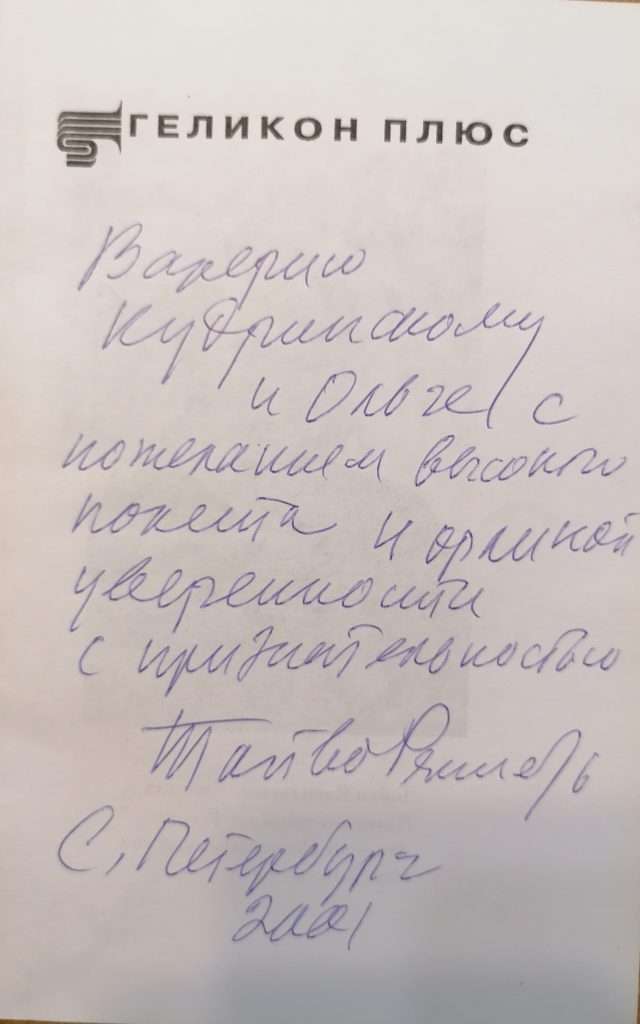 ГЕЛИКОН ПЛЮС
Валерию
Кудринскому
и Ольге с
пожеланием высокого
полета и орлиной
уверенности
с признательностью
С, Петербург
2001